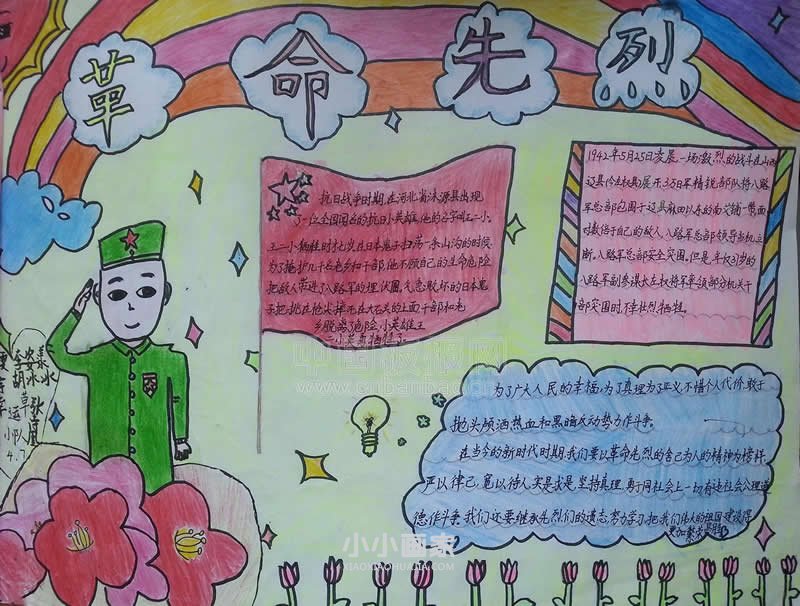 革命先烈
抗日战争时期,在河北省涞源县出现
了一位全国闻名的抗日小英雄,他的名字叫王二小。
王二小牺牲时才13岁,在日本鬼子扫荡一条山沟的时候,
为了掩护几千名老乡和干部,他不顾自己的生命危险
把敌人带进了八路军的埋伏圈,气急败坏的日本鬼
子把挑在枪尖摔死在大石头的上面干部和老
乡脱离了危险,小英雄王
二小英勇牺牲了
1942年5月25日凌晨,一场激烈的战斗在山西
辽县(今左权县)展开,3万日军精锐部队将八路
军总部包围于辽县麻田以东的南艾铺一带面
对数倍于自己的敌人,八路军总部领导当机立
断,八路军总部安全突围,但是,年仅37岁的
八路军副参谋长左权将军率领部分机关干
部突围时,不幸壮烈牺牲。
为了广大人民的幸福,为了真理为了正义不惜个人代价,敢于
抛头颅洒热血和黑暗反动势力作斗争。
在当今的新时代时期,我们要以革命先烈的舍己为人的精神为榜样,
严以律己,宽以待人,实是求是,坚持真理,勇于同社会上一切有违社会公理道
德作斗争,我们还要继承先烈们的遗志,努力学习,把我们伟大的祖国建设得
更加繁荣昌盛
小队
4.7
中国板报网
www.cnbanbao.com
小小画家
XIAOXIAOHUAJIA.COM